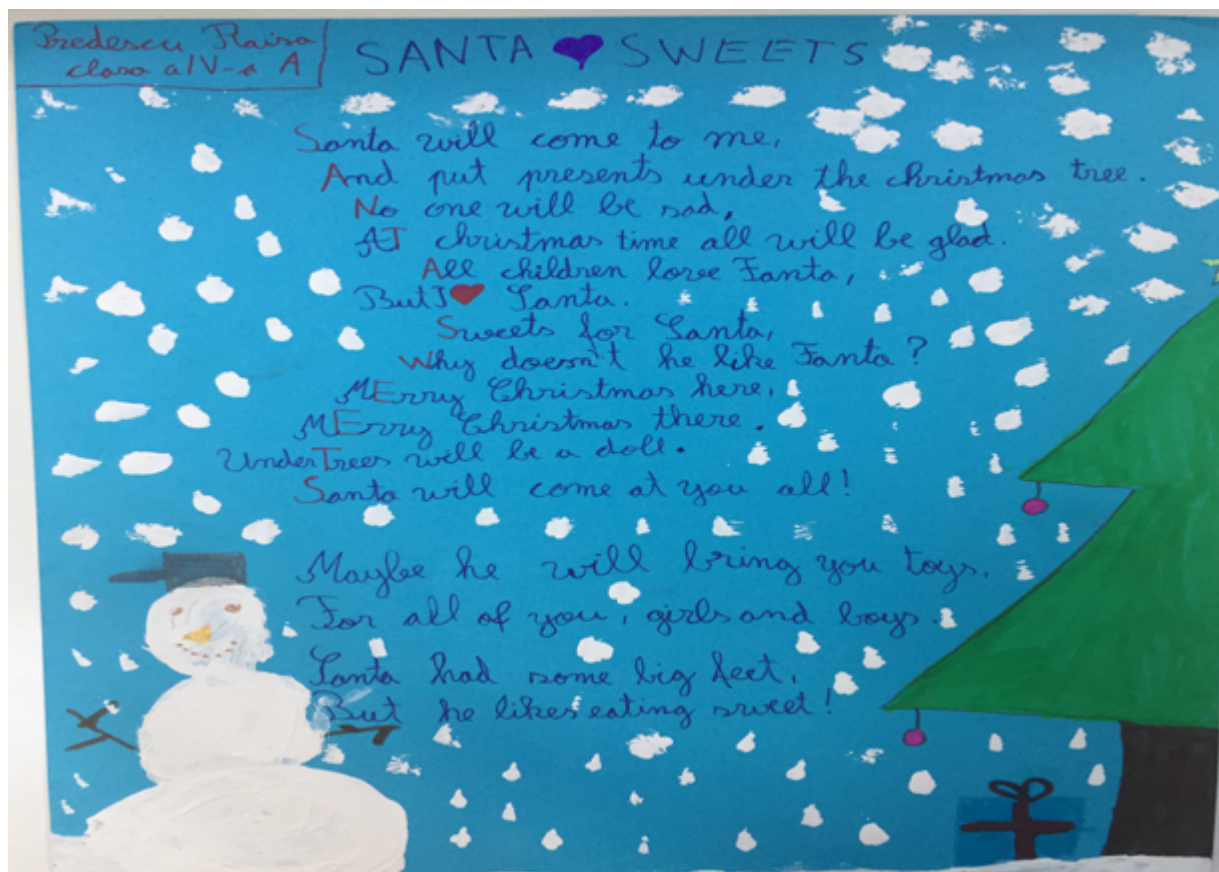 Predescu Raisa
clasa a IV-a A
SANTA ♥ SWEETS
Santa will come to me,
And put presents under the christmas tree.
No one will be sad,
AT christmas time all will be glad.
All children love Fanta,
But I ♥ Santa.
Sweets for Santa,
Why doesn't he like Fanta?
MErry Christmas here,
MErry Christmas there.
Under Trees will be a doll.
Santa will come at you all!
Maybe he will bring you toys,
For all of you, girls and boys.
Santa had some big feet,
But he likes eating sweet!